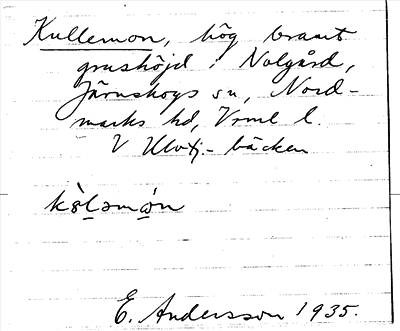 Kullemon, hög brant
grushöjd i Nolgård,
Järnskogs sn, Nord-
marks hd, Vrml l.
V Ulvtj.- bäcken
kɵ̀l̲əmǫ̀n
E. Andersson 1935.